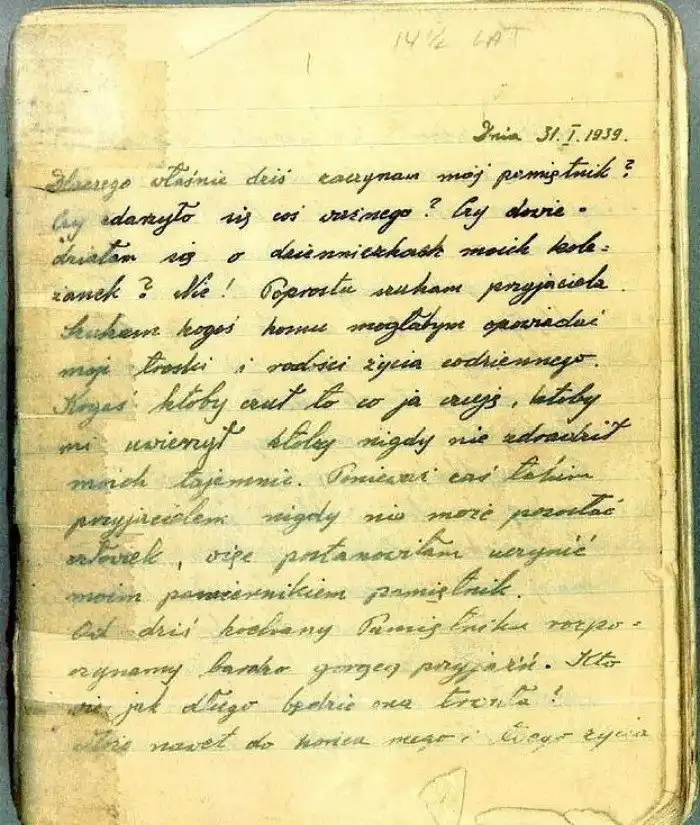 14 ½ LAT
Dnia 31.I.1939.
Dlaczego właśnie dziś zaczynam mój pamiętnik?
Czy zdarzyło się coś ważnego? Czy dowie-
działam się o dzienniczkach moich kole-
żanek? Nie! Poprostu szukam przyjaciela.
Szukam kogoś komu mogłabym opowiadać
moje troski i radości życia codziennego.
Kogoś któby czuł to co ja czuję, któby
mi uwierzył któby nigdy nie zdradził
moich tajemnic. Ponieważ zaś takim
przyjacielem nigdy nie może pozostać
człowiek, więc postanowiłam uczynić
moim powiernikiem pamiętnik.
Od dziś kochany Pamiętniku rozpo-
czynamy bardzo gorącą przyjaźń. Kto
wie jak długo będzie ona trwała?
Może nawet do końca mego i twego życia